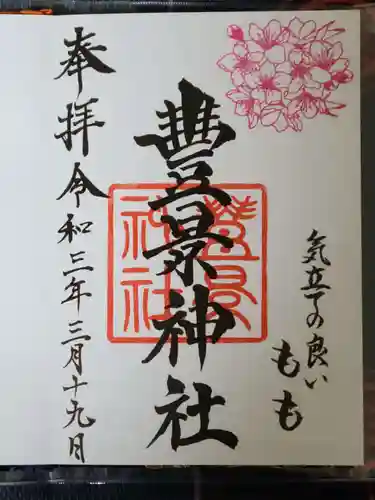 気立ての良い
もも
豊景神社
奉拝 令和三年三月十九日